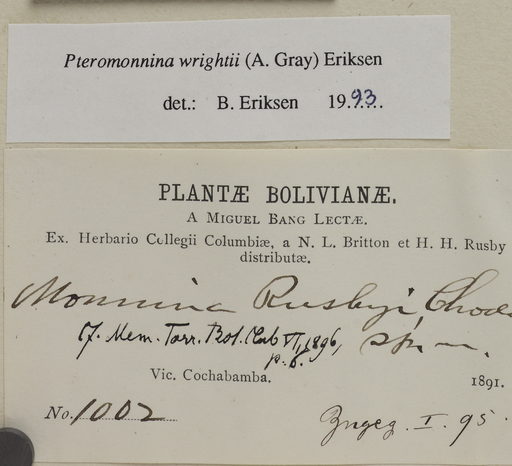 Pteromonnina wrightii (A. Gray) Eriksen
det.: B. Eriksen 1993
PLANTÆ BOLIVIANÆ.
A MIGUEL BANG LECTÆ.
Ex. Herbario Collegii Columbiæ, a N. L. Britton et H. H. Rusby
distributæ.
Monnina Rusbyi, Chod.
cf. Mem. Torr. Bot. Club VI, 1896, sp. n.
p. 6.
Vic. Cochabamba.
1891.
No. 1002
I. 95.